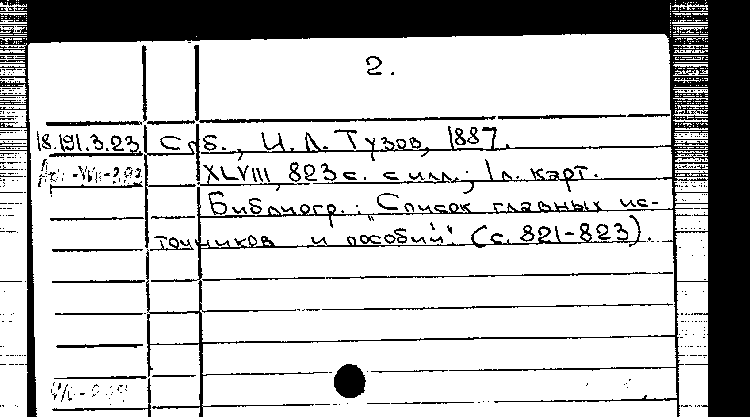 2.
18.191.3.23 Спб., И. Л. Тузов, 1887.
XLVIII, 823 с. с илл.; 1 л. карт.
Библиогр.: "Список главных ис-
точников и пособий" (с. 821-823).